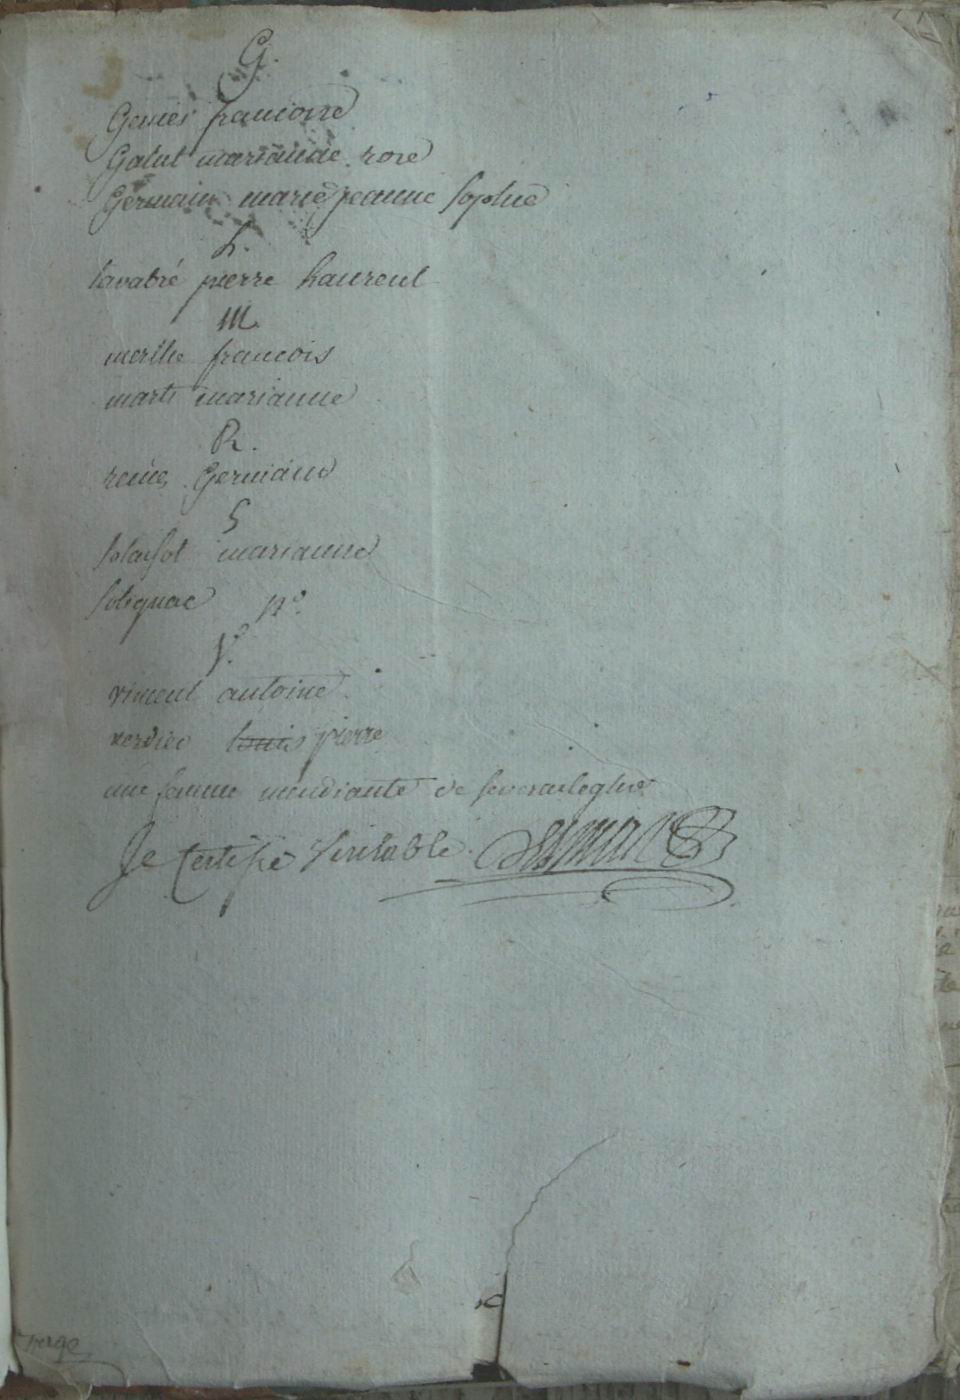 G.
Genies francoise
Galut marianne rose
Germain marie jeanne Sophie
L.
lavabré pierre Laurent
M.
merlhe francois
marti marianne
R.
Germaine
S
marianne
Solignac pre
V.
vincent antoine
verdier louis pierre
une femme mendiante de
Je Certifie Veritable